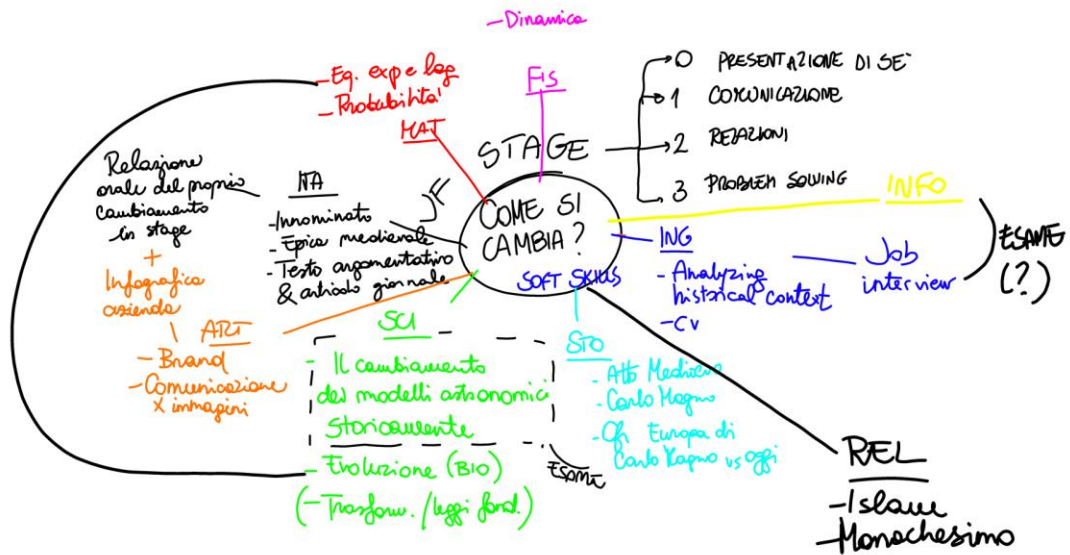 - Dinamica
FIS
- Eq. exp e log
- Probabilità
MAT
STAGE
0 PRESENTAZIONE DI SE'
1 COMUNICAZIONE
2 RELAZIONI
3 PROBLEM SOLVING
COME SI
CAMBIA?
SOFT SKILLS
Relazione
orale del proprio
cambiamento
in stage
+
Infografica
azienda
ITA
- Innominato
- Epica medievale
- Testo argomentativo
& articolo giornale
ART
- Brand
- Comunicazione
x immagini
INFO
ING
- Analyzing
historical context
- CV
Job
interview
ESAME
(?)
SCI
- Il cambiamento
dei modelli astronomici
storicamente
- Evoluzione (BIO)
(- Trasform. / leggi fond.)
ESAME
STO
- Alto Medioevo
- Carlo Magno
- Cfr Europa di
Carlo Magno vs oggi
REL
- Islam
- Monachesimo